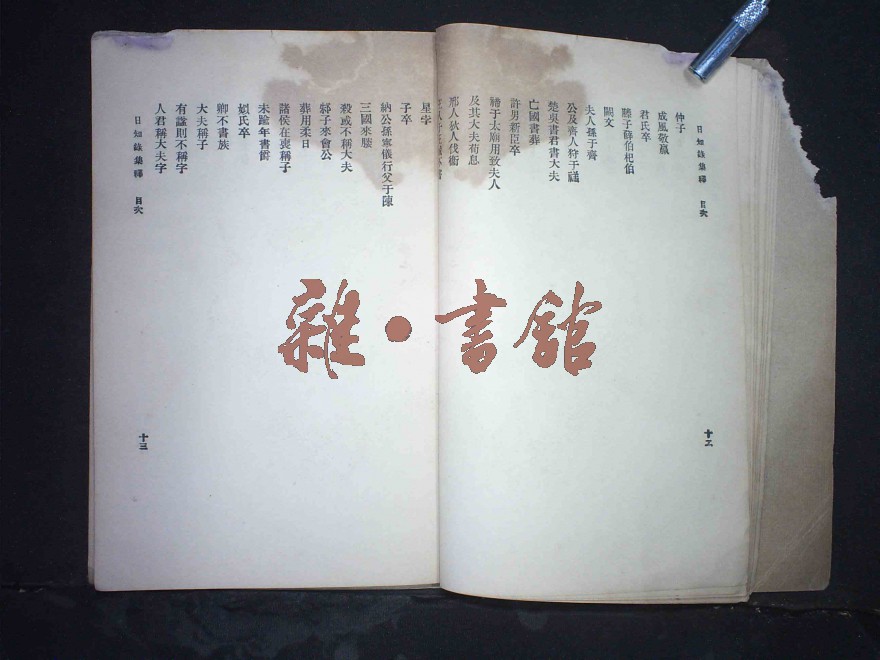 日知錄集釋 目次
仲子
成風敬嬴
君氏卒
滕子薛伯杞伯
闕文
夫人孫于齊
公及齊人狩于禚
楚吳書君書大夫
亡國書葬
許男新臣卒
禘于太廟用致夫人
及其大夫荀息
邢人狄人伐衞
書
十二
星孛
子卒
納公孫寧儀行父于陳
三國來媵
殺或不稱大夫
邾子來會公
葬用柔日
諸侯在喪稱子
未踰年書爵
姒氏卒
卿不書族
大夫稱子
有謚則不稱字
人君稱大夫字
日知錄集釋 目次
十三
雜·書館